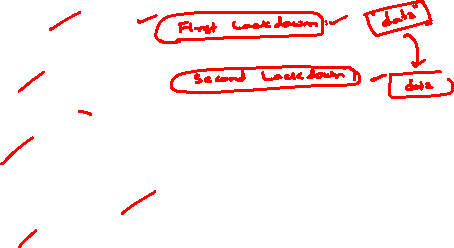 First Lockdown: "data"
Second Lockdown data